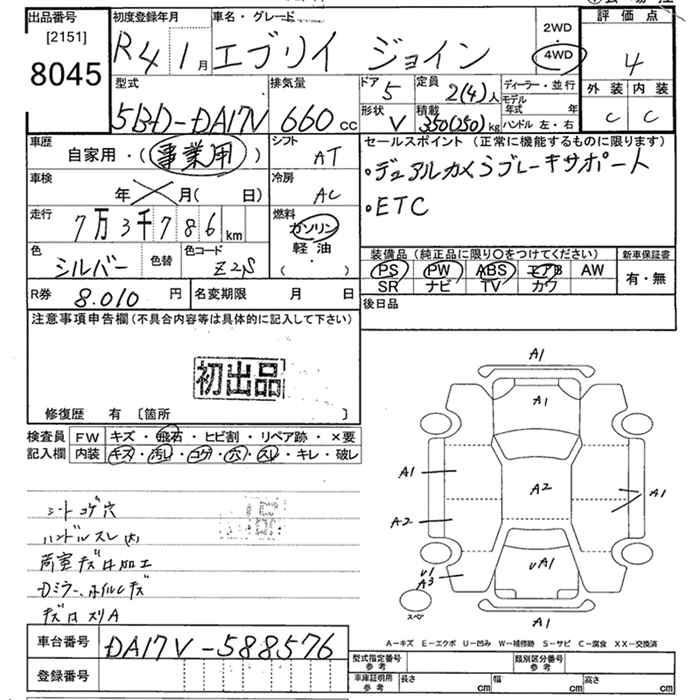 出品番号 初度登録年月 車名・グレード 2WD 評価点
[2151] 8045 R4 1月 エブリイ ジョイン 4WD 4
外装 内装
C C
型式 排気量 ドア 5 定員 2(4)人 ディーラー・並行
モデル年式 年
5BD-DA17V 660cc 形状 V 積載 350(250)kg ハンドル 左・右
車歴 自家用・(事業用) シフト AT セールスポイント(正常に機能するものに限ります)
・デュアルカメラブレーキサポート
車検 年 月( 日) 冷房 AC
・ETC
走行 7万3千786km 燃料 ガソリン 軽・油 ( )
色 シルバー 色替 色コード Z2S
装備品(純正品に限り○をつけてください) 新車保証書
PS PW ABS エアB AW 有・無
SR ナビ TV カワ
R券 8.010円 名変期限 月 日 後日品
注意事項申告欄(不具合内容等は具体的に記入して下さい)
初出品
修復歴 有 [箇所 ]
検査員 FW キズ・飛石・ヒビ割・リペア跡・×要
記入欄 内装 キズ・汚レ・コゲ・穴・スレ・キレ・破レ
シートコゲ穴
ハンドルスレ
荷室キズ 加工
Dミラー、ホイルキズ
A1
A1
A1
A2
A1
A2
U1
A3
UA1
A1
スペア
A-キズ E-エクボ U-凹み W-補修跡 S-サビ C-腐食 XX-交換済
車台番号 DA17V-588576
登録番号
型式指定番号 参考 類別区分番号 参考
車庫証明用 参考 長さ cm 幅 cm 高さ cm